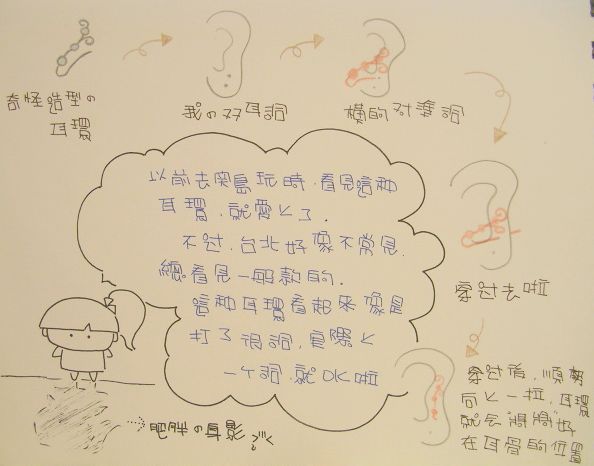 奇怪造型の
耳環
我の双耳洞
橫的对準洞
穿过去啦
穿过後,順勢
向上一拉,耳環
就会"剛剛"好
在耳骨的位置
以前去関島玩時,看見這种
耳環,就愛上了.
不过,台北好像不常見,
總看見一般款的.
這种耳環看起來像是
打了很洞,實際上
一个洞,就OK啦
肥胖の身影